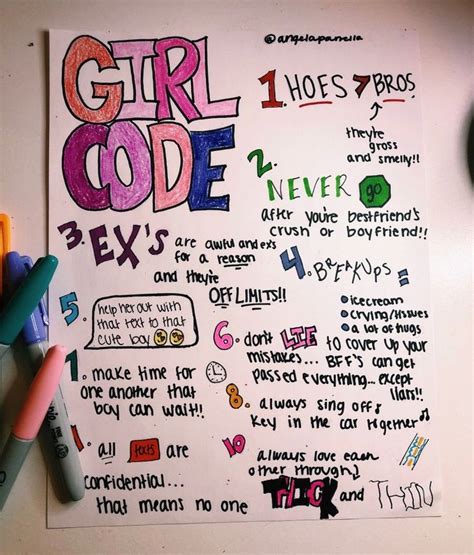 GIRL
CODE
@angelaparrella
1. HOES > BROS
they're
gross
and smelly!!
2.
NEVER go
after you're bestfriend's
crush or boyfriend!!
3. EX'S are awful and exs
for a reason
and they're
OFF LIMITS!!
4. BREAKUPS:
icecream
crying/tissues
a lot of hugs
5. help her out with
that text to that
cute boy
6. don't LIE to cover up your
mistakes... BFF's can get
passed everything... except
liars!!
7. make time for
one another that
boy can wait!!
8. always sing off
key in the car together
9. all texts are
confidential...
that means no one
10 always love each
other through
THICK and THIN